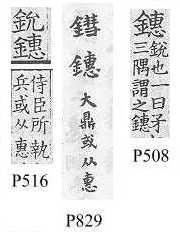 鋭
鏸
侍臣所執
兵或从惠
P516
鏏鏸大鼎或从惠
P829
鏸
銳也一曰矛
三隅謂之鏸
P508